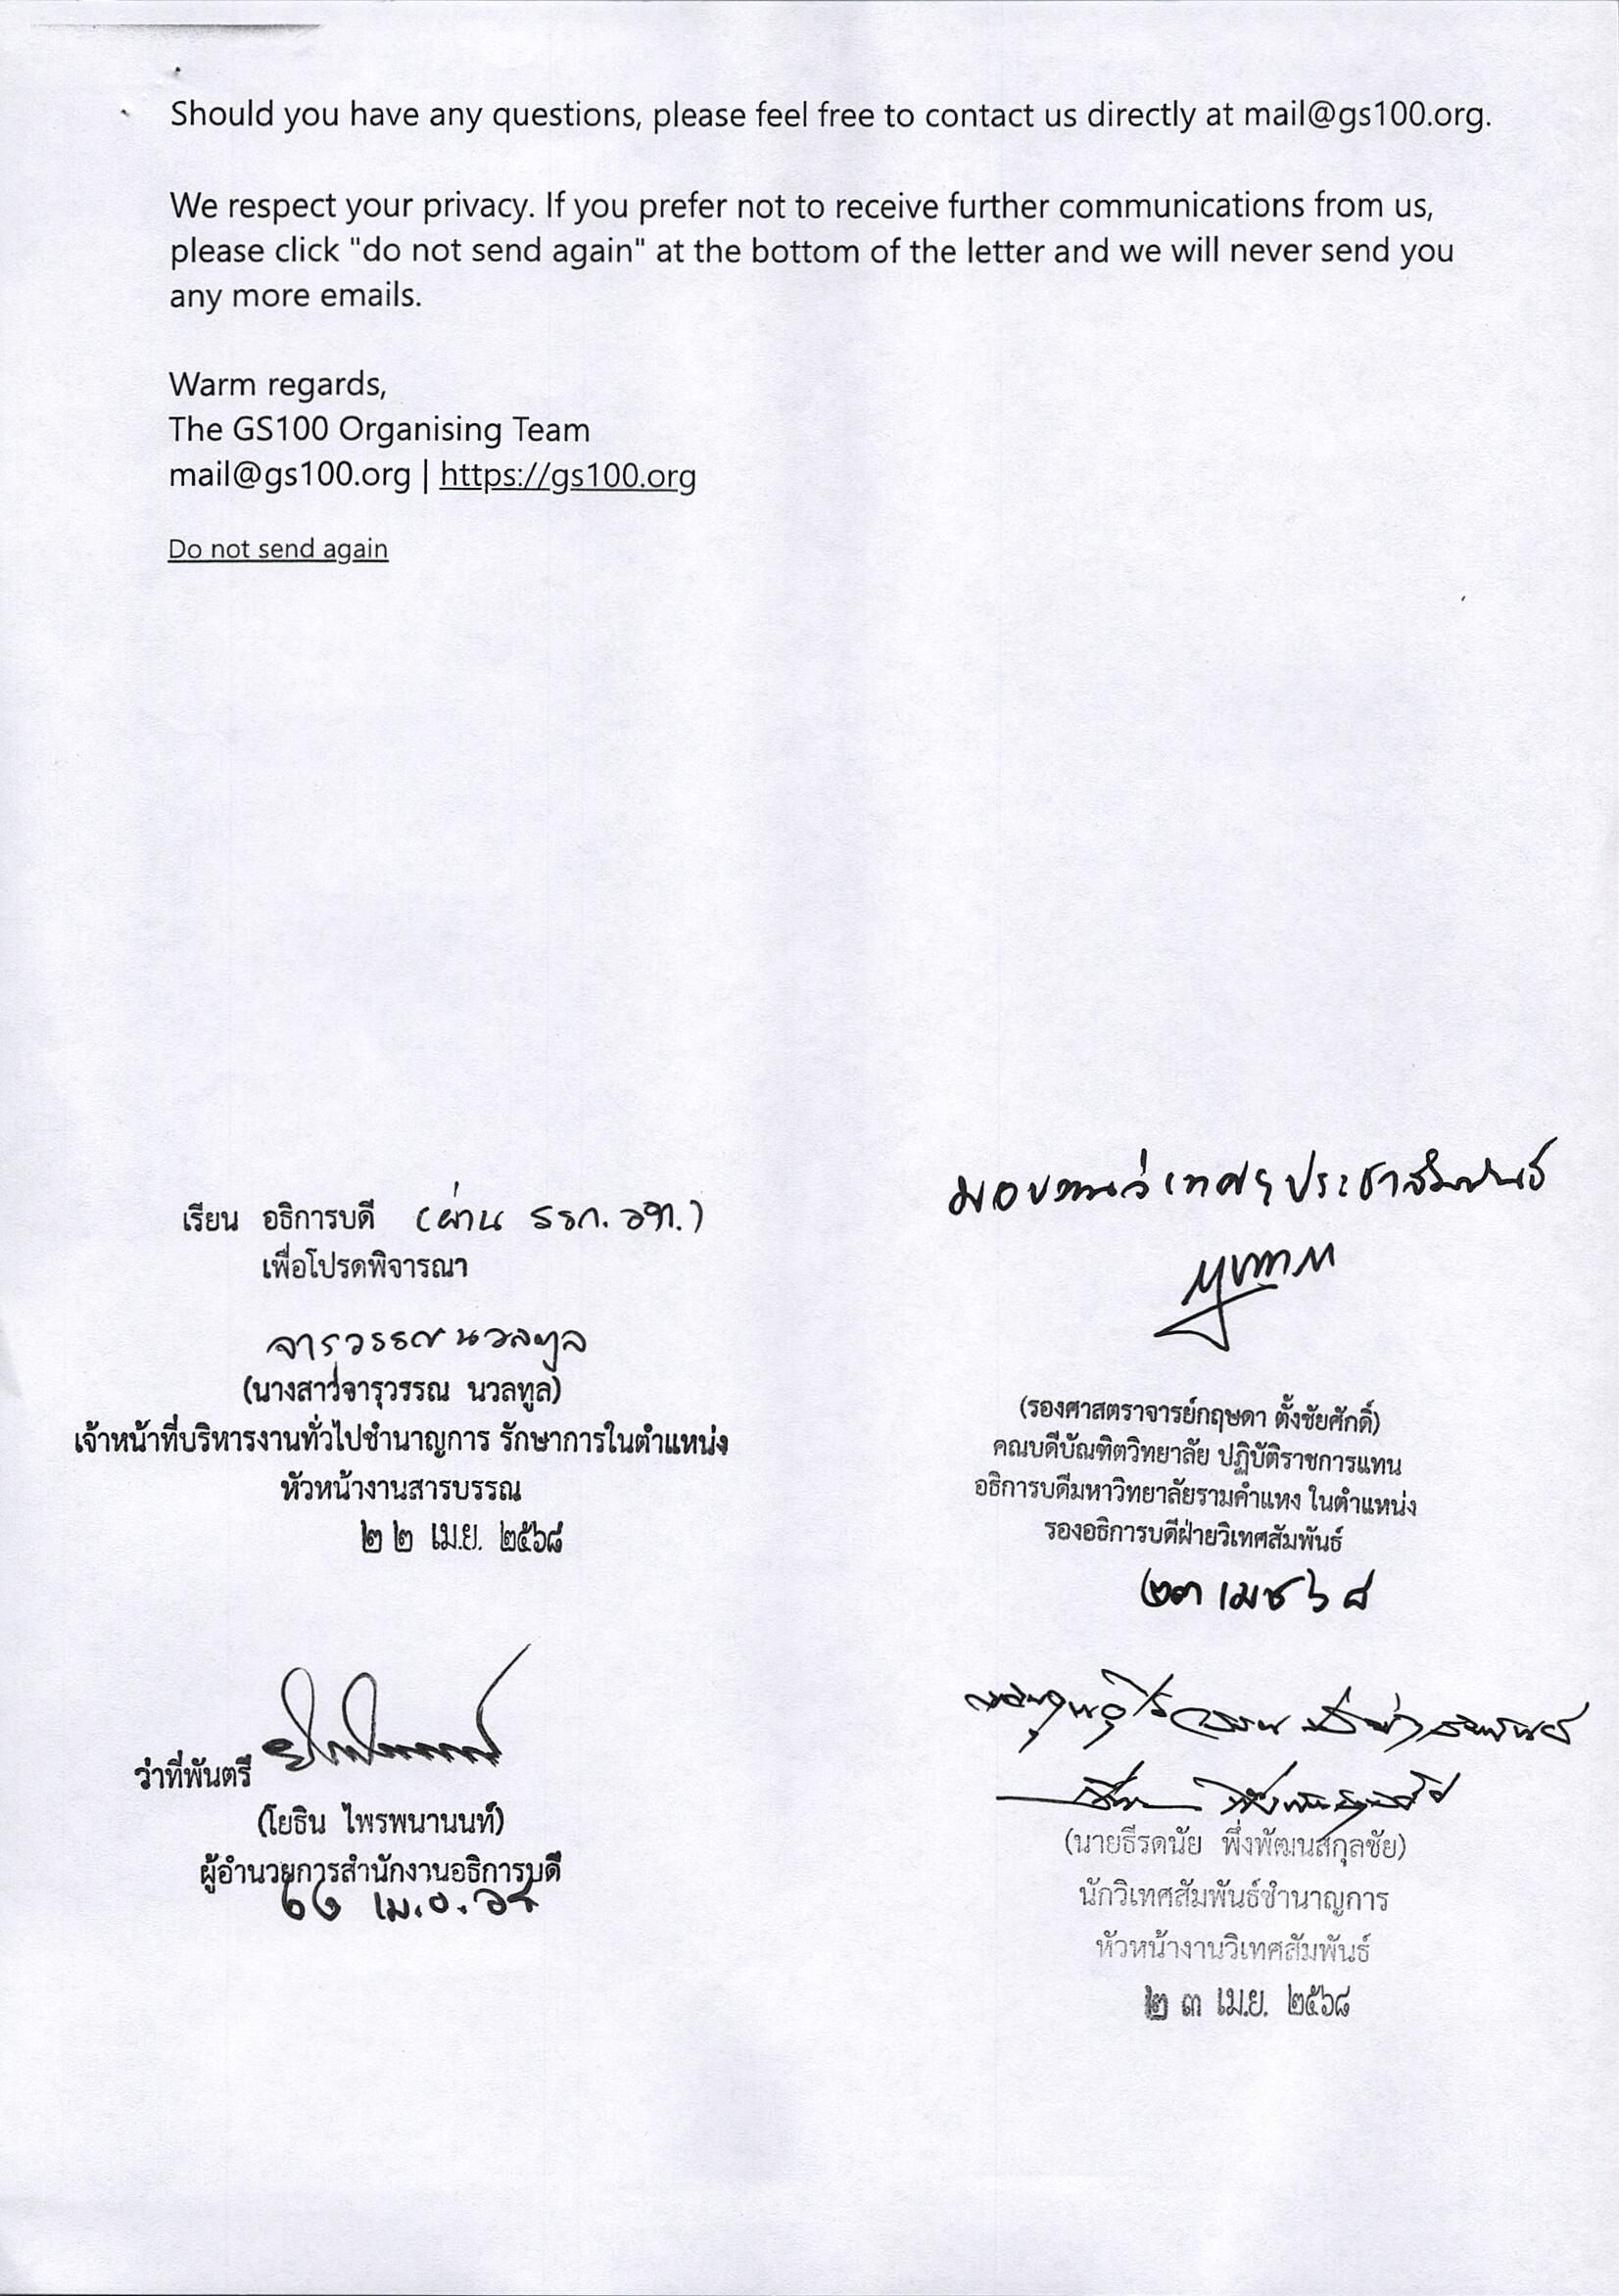 Should you have any questions, please feel free to contact us directly at mail@gs100.org.
We respect your privacy. If you prefer not to receive further communications from us,
please click "do not send again" at the bottom of the letter and we will never send you
any more emails.
Warm regards,
The GS100 Organising Team
mail@gs100.org | https://gs100.org
Do not send again
เรียน อธิการบดี (ผ่าน รรก.อท.)
เพื่อโปรดพิจารณา
จารุวรรณ นวลทูล
(นางสาวจารุวรรณ นวลทูล)
เจ้าหน้าที่บริหารงานทั่วไปชำนาญการ รักษาการในตำแหน่ง
หัวหน้างานสารบรรณ
๒๒ เม.ย. ๒๕๖๘
ว่าที่พันตรี
(โยธิน ไพรพนานนท์)
ผู้อำนวยการสำนักงานอธิการบดี
มอบงานวิเทศฯ ประชาสัมพันธ์
(รองศาสตราจารย์กฤษดา ตั้งชัยศักดิ์)
คณบดีบัณฑิตวิทยาลัย ปฏิบัติราชการแทน
อธิการบดีมหาวิทยาลัยรามคำแหง ในตำแหน่ง
รองอธิการบดีฝ่ายวิเทศสัมพันธ์
๒๓ เมย ๖๘
(นายธีรดนัย พึ่งพัฒนสกุลชัย)
นักวิเทศสัมพันธ์ชำนาญการ
หัวหน้างานวิเทศสัมพันธ์
๒๓ เม.ย. ๒๕๖๘